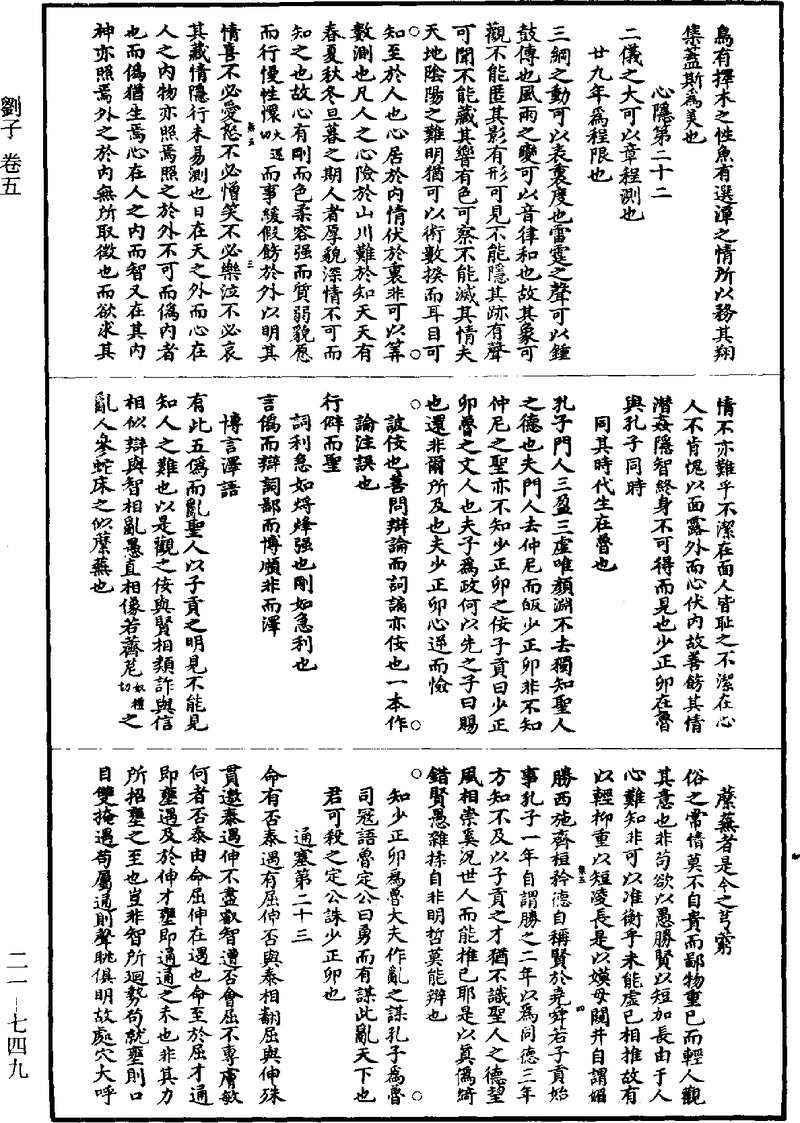 劉子 卷五
鳥有擇木之性魚有選潭之情所以務其翔
集蓋斯為美也
心隱第二十二
二儀之大可以章程測也
廿九年為程限也
三綱之動可以表衰度也雷霆之聲可以鍾
鼓傳也風雨之變可以音律和也故其象可
觀不能匿其影有形可見不能隱其跡有聲
可聞不能藏其響有色可察不能滅其情夫
天地陰陽之難明猶可以術數揆而耳目可
知至於人也心居於內情伏於裏非可以筭
數測也凡人之心險於山川難於知天天有
春夏秋冬旦暮之期人者厚貌深情不可而
知之也故心有剛而色柔容强而質弱貌愿
而行慢性懁火遠切而事緩假飾於外以明其
情喜不必愛怒不必憎笑不必樂泣不必哀
其藏情隱行未易測也日在天之外而心在
人之內物亦照焉照之於外不可而偽內者
也而偽猶生焉心在人之內而智又在其內
神亦照焉外之於內無所取徵也而欲求其
情不亦難乎不潔在面人皆耻之不潔在心
人不肯愧以面露外而心伏內故善飾其情
潛姦隱智終身不可得而見也少正卯在魯
與孔子同時
同其時代生在魯也
孔子門人三盈三虛唯顏淵不去獨知聖人
之德也夫門人去仲尼而皈少正卯非不知
仲尼之聖亦不知少正卯之佞子貢曰少正
卯魯之文人也夫子為政何以先之子曰賜
也還非爾所及也夫少正卯心逆而憸
詖佞也善問辯論而詞讇亦佞也一本作
論注誤也
行僻而堅
詞利急如焊烽强也剛如急利也
言偽而辯詞鄙而博順非而澤
博言澤語
有此五偽而亂聖人以子貢之明見不能見
知人之難也以是觀之佞與賢相類詐與信
相似辯與智相亂愚直相像若薺苨奴禮切之
亂人參蛇床之似蘪蕪也
蘪蕪者是今之芎藭
俗之常情莫不自貴而鄙物重己而輕人觀
其意也非苟欲以愚勝賢以短加長由于人
心難知非可以准衡乎未能虛己相推故有
以輕抑重以短淩長是以嫫母闚井自謂媚
勝西施齊桓矜德自稱賢於堯舜若子貢始
事孔子一年自謂勝之二年以為同德三年
方知不及以子貢之才猶不識聖人之德望
風相崇奚況世人而能推己耶是以真偽綺
錯賢愚雜揉自非明哲莫能辨也
知少正卯為魯大夫作亂之謀孔子為魯
司冦語魯定公曰勇而有謀此亂天下也
君可殺之定公誅少正卯也
通塞第二十三
命有否泰遇有屈伸否與泰相翻屈與伸殊
貫遨泰遇伸不盡叡智遭否會屈不專膚敏
何者否泰由命屈伸在遇也命至於屈才通
即壅遇及於伸才壅即通通之来也非其力
所招壅之至也豈非智所迴勢苟就壅則口
目雙掩遇苟屬通則聲眺俱明故處穴大呼
二一—七四九